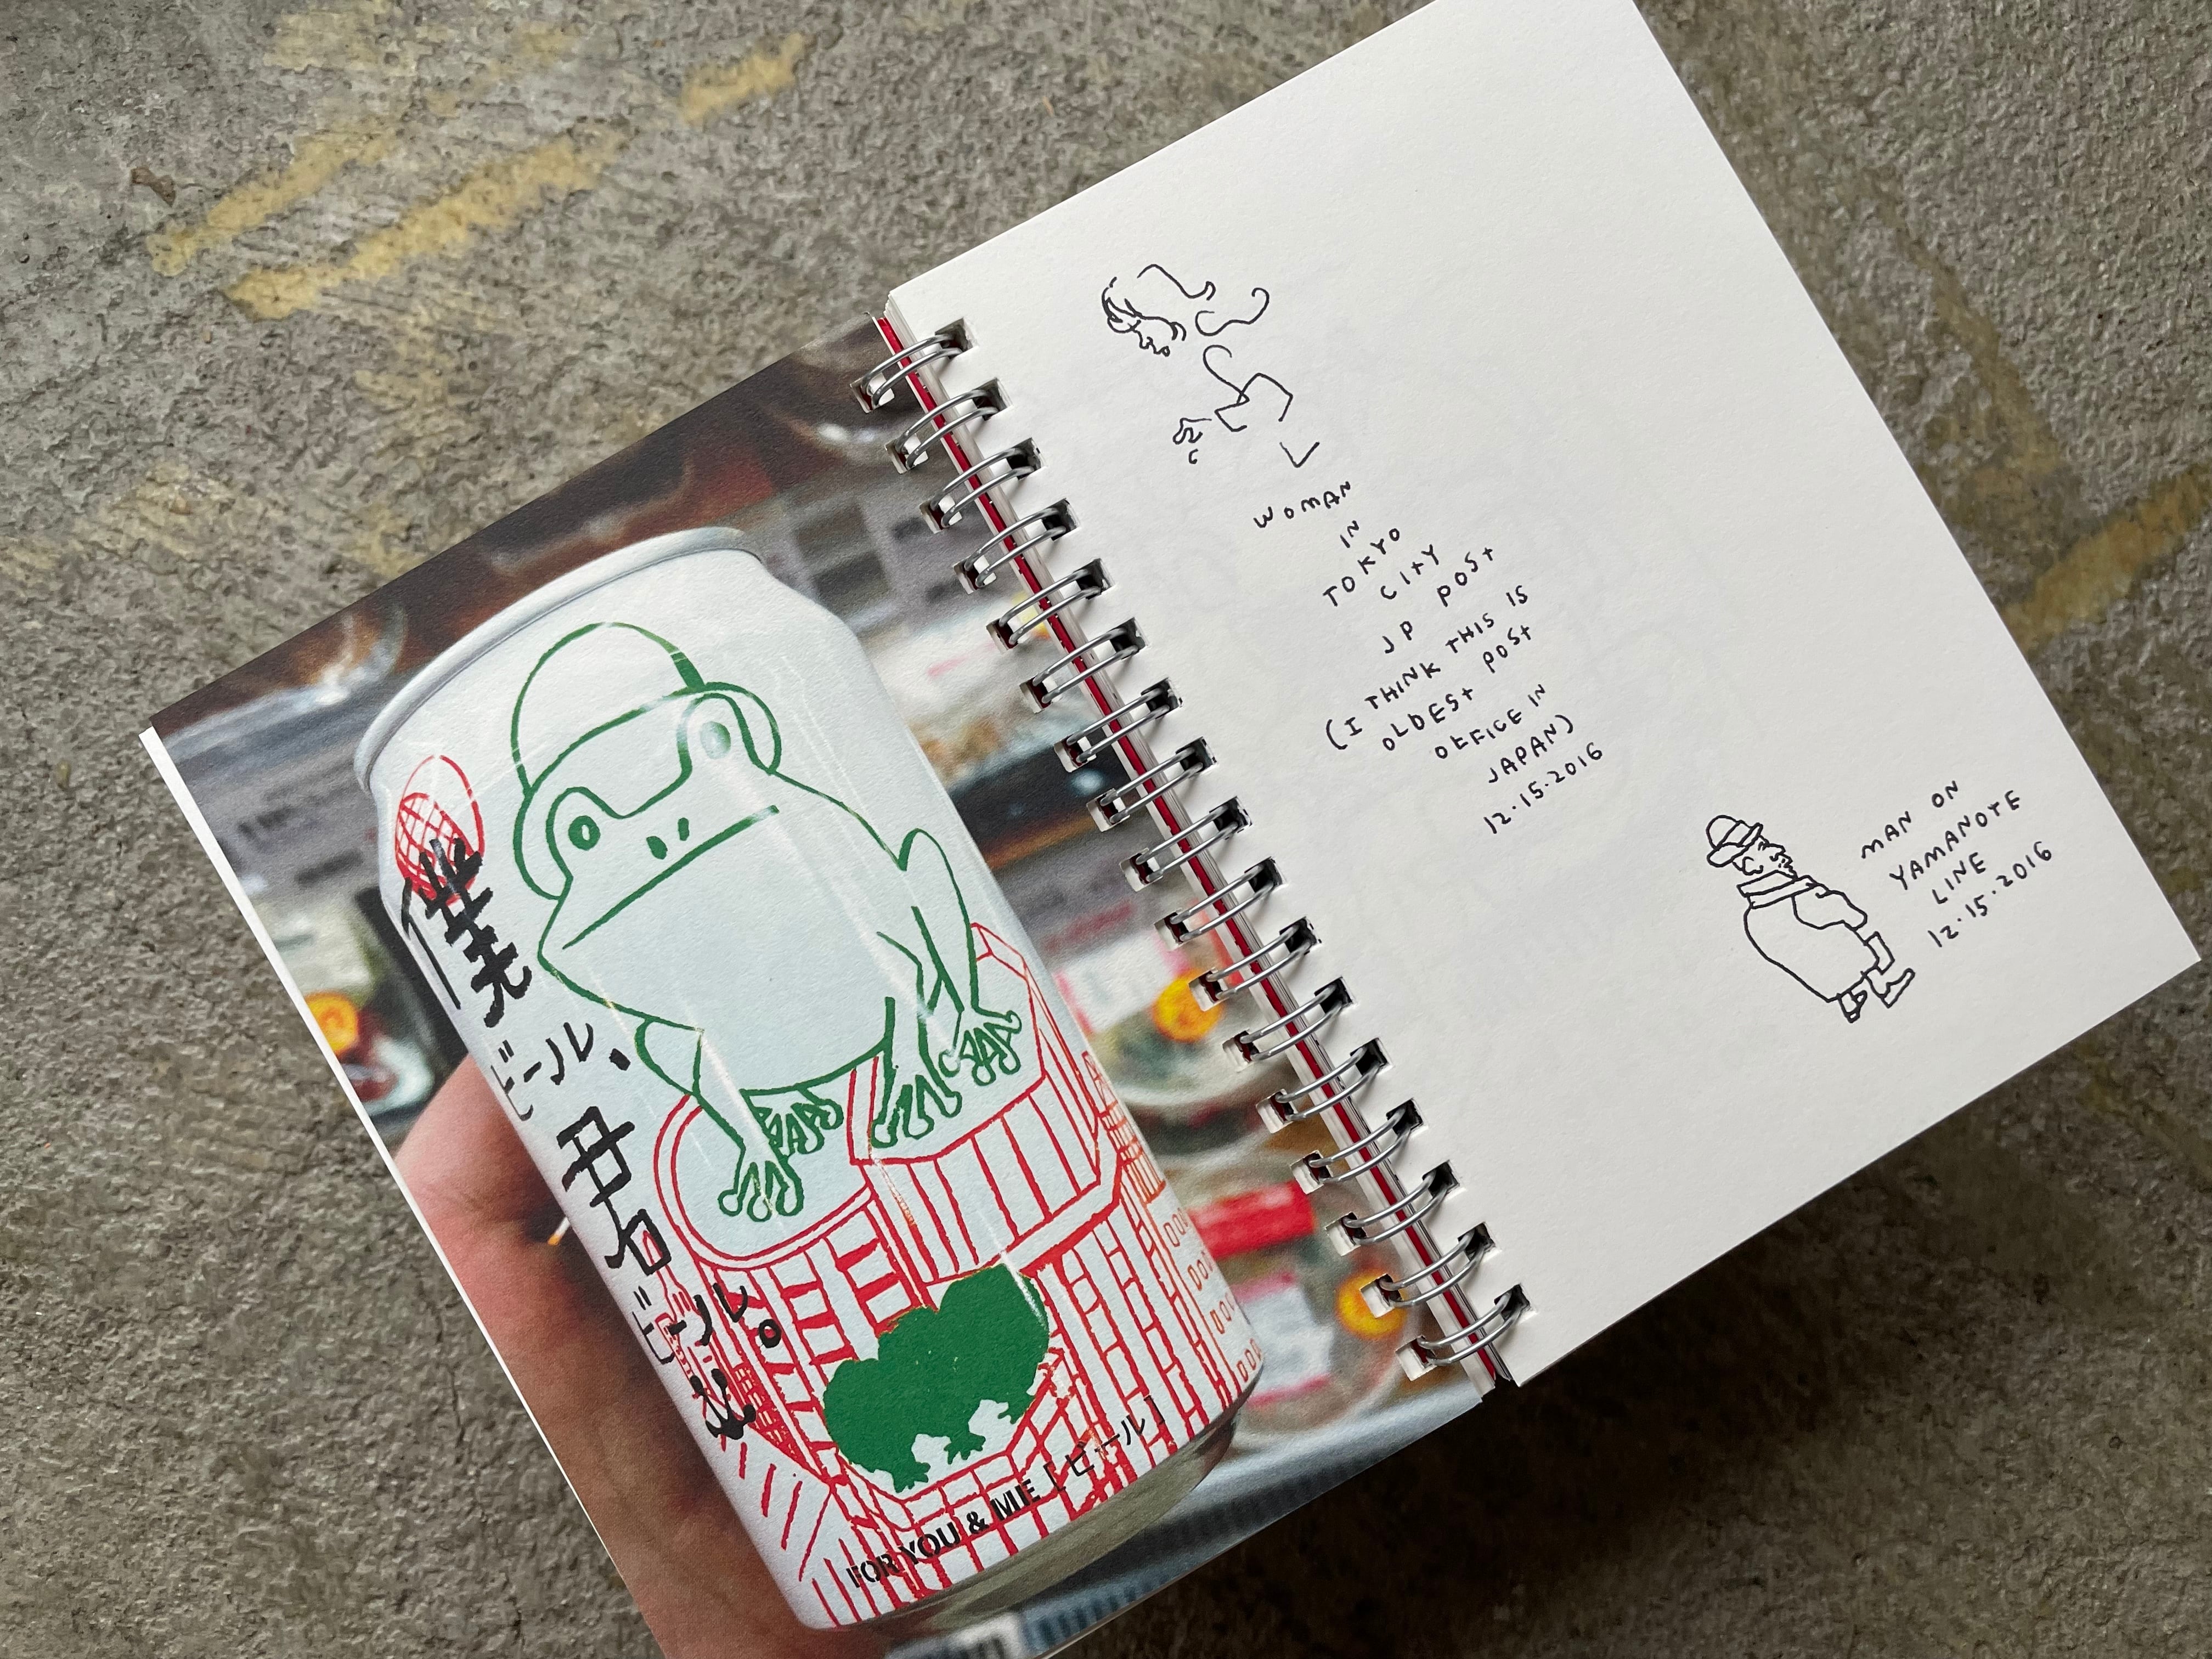 僕ビール、君ビール。
FOR YOU & ME [ビール]
WOMAN
IN
TOKYO
CITY
JP POST
(I THINK THIS IS
OLDEST POST
OFFICE IN
JAPAN)
12.15.2016
MAN ON
YAMANOTE
LINE
12.15.2016